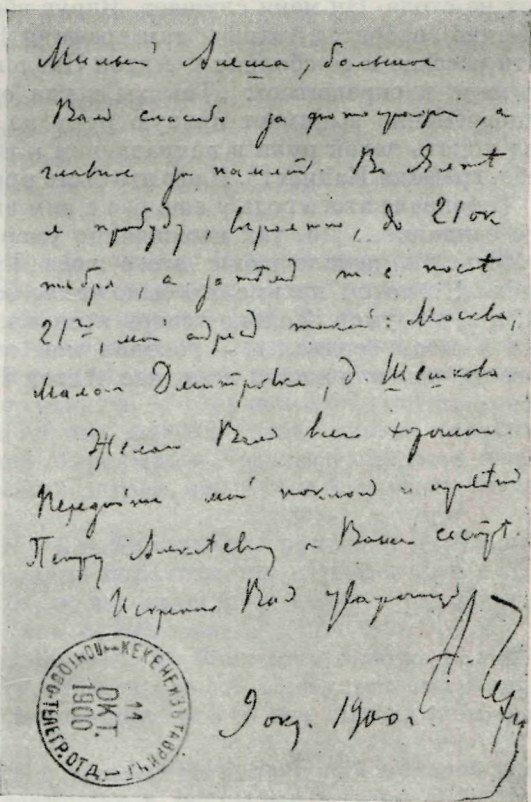 Милый Алеша, большое
Вам спасибо за фотографии, а
главное за память. В Ялте
я пробуду, вероятно, до 21 ок
тября, а затем т. е. после
21го, мой адрес такой: Москва,
Малая Дмитровка, д Шешкова
Желаю Вам всего хорошего
Передайте мой поклон и привет
Петру Алексеевичу и Вашей сестре.
Искренно Вас уважающий
А. Чехов
9 окт. 1900 г.
КЕКЕНЕИЗЪ ТАВРИЧ.
ПОЧТОВО-ТЕЛЕГР. ОТД.
11
ОКТ.
1900